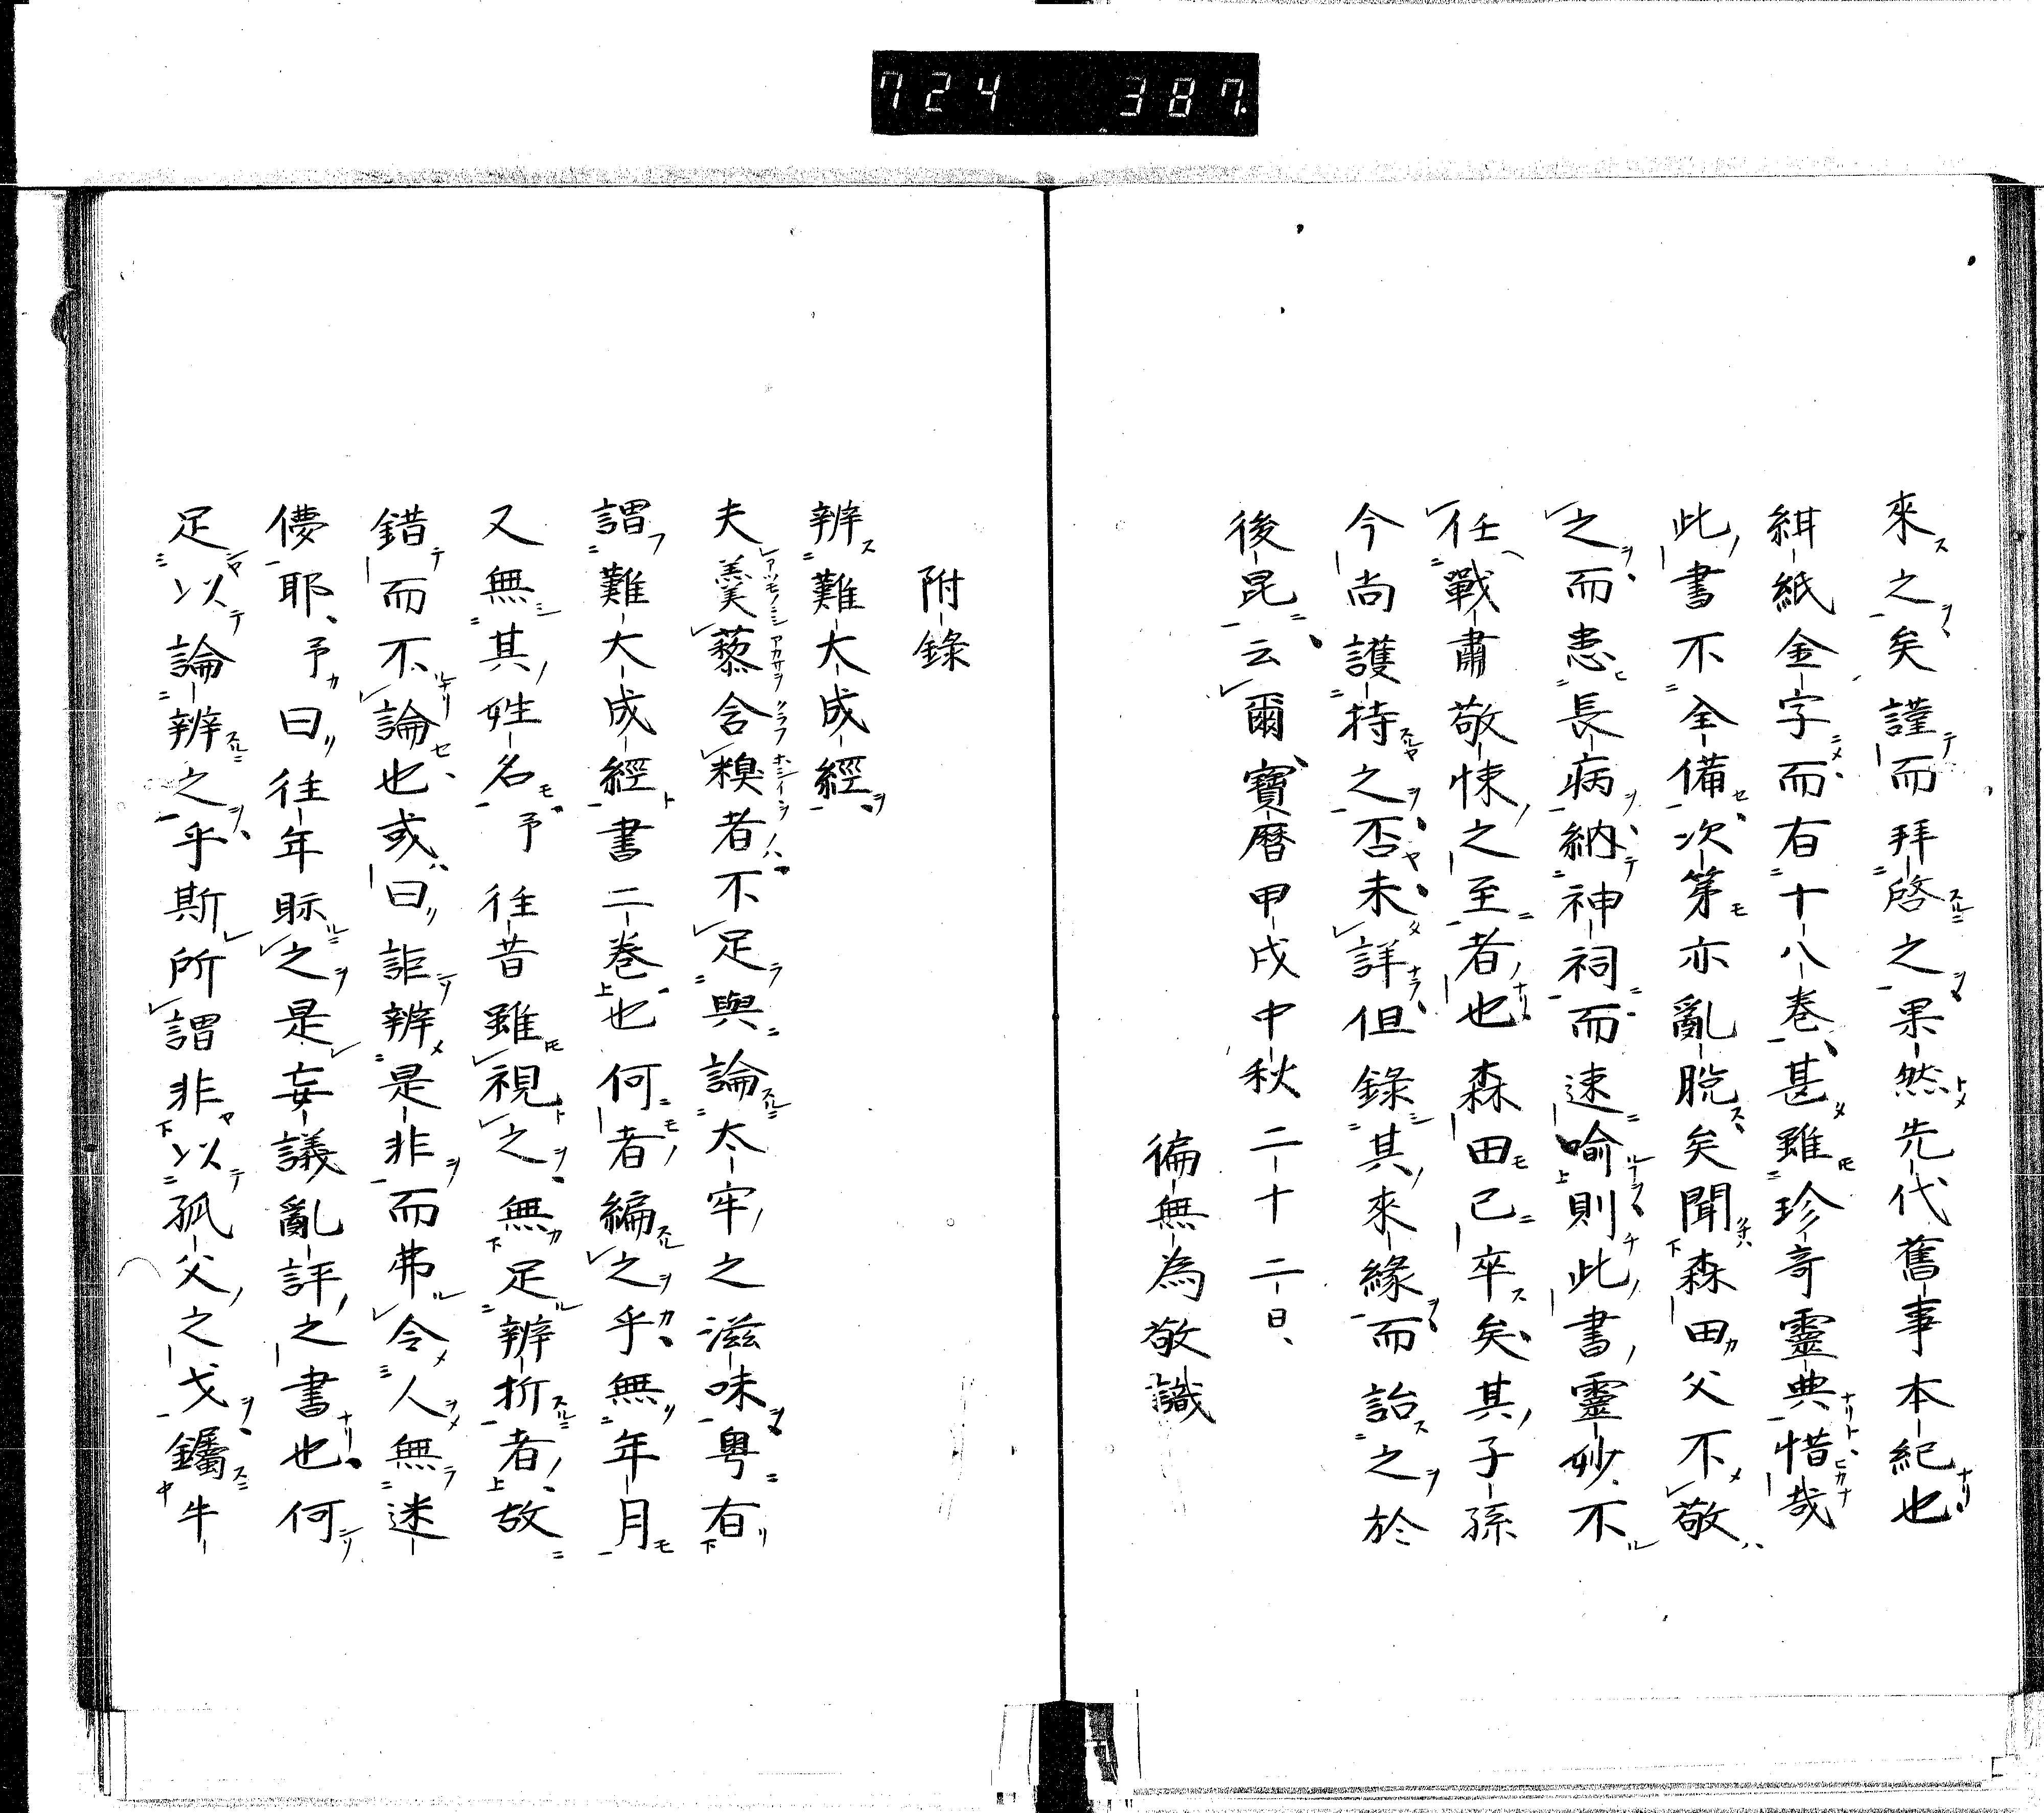 724 387
來之矣謹而拜啓之果然先代舊事本紀也
紺紙金字而有十八巻甚雖珍奇靈典惜哉
此書不全備次第亦亂脱矣聞森田父不敬
之而患長病納神祠而速喻則此書靈妙不
任戰肅敬悚之至者也森田已卒矣其子孫
今尚護持之否未詳但錄其來緣而詒之於
後昆云爾寶曆甲戌中秋二十二日
徧無為敬識
附錄
辨難大成經
夫羮藜含糗者不足與論太牢之滋味粤有
謂難大成經書二巻也何者編之乎無年月
又無其姓名予往昔雖視之無足辨折者故
錯而不論也或曰詎辨是非而弗令人無迷
儚耶予曰往年眎之是妄議亂評之書也何
足以論辨之乎斯所謂非以孤父之戈钃牛